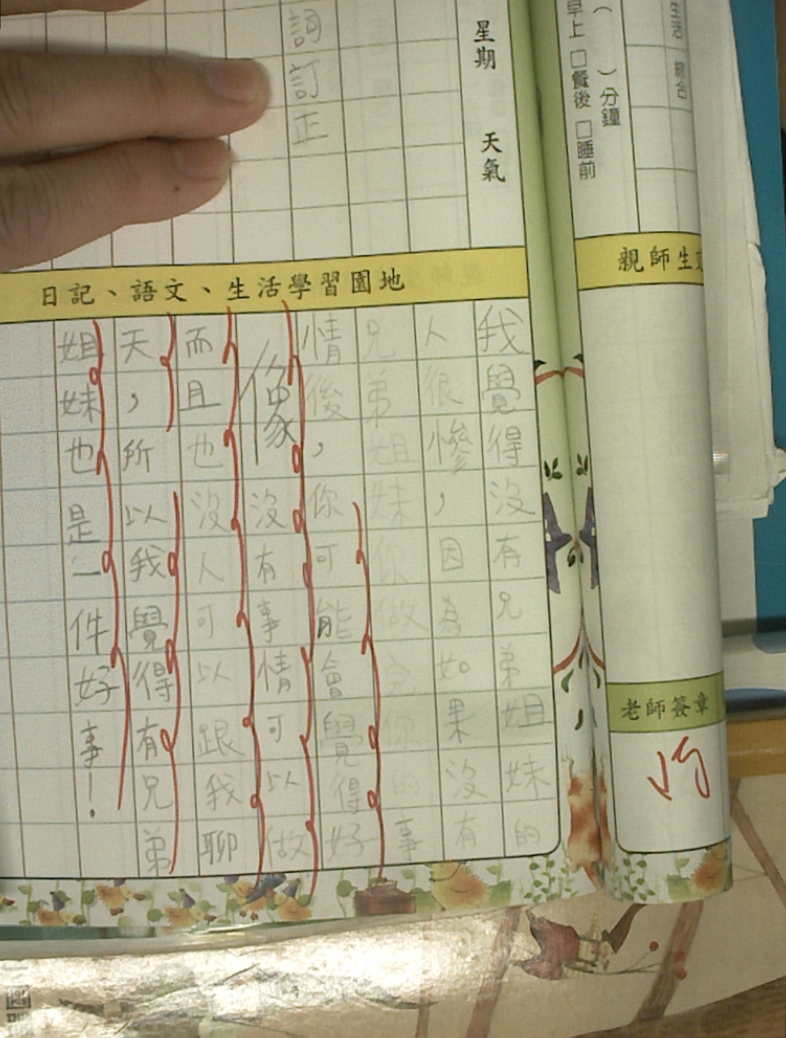 生活
（　）分鐘
早上 □餐後 □睡前
親師生
老師簽章
星期　天氣
詞訂正
日記、語文、生活學習園地
我覺得沒有兄弟姐妹的
人很慘，因為如果沒有
兄弟姐妹你做完你的事
情後，你可能會覺得好
像沒有事情可以做
而且也沒人可以跟我聊
天，所以我覺得有兄弟
姐妹也是一件好事！